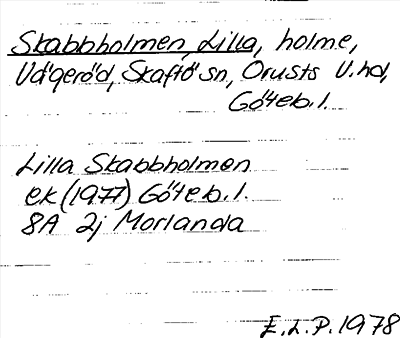 Skabbholmen, Lilla, holme,
Vägeröd, Skaftö sn, Orusts V. hd,
Göteb. l.
Lilla Skabbholmen
ek (1977) Göteb. l.
8A 2j Morlanda
E. L. P. 1978